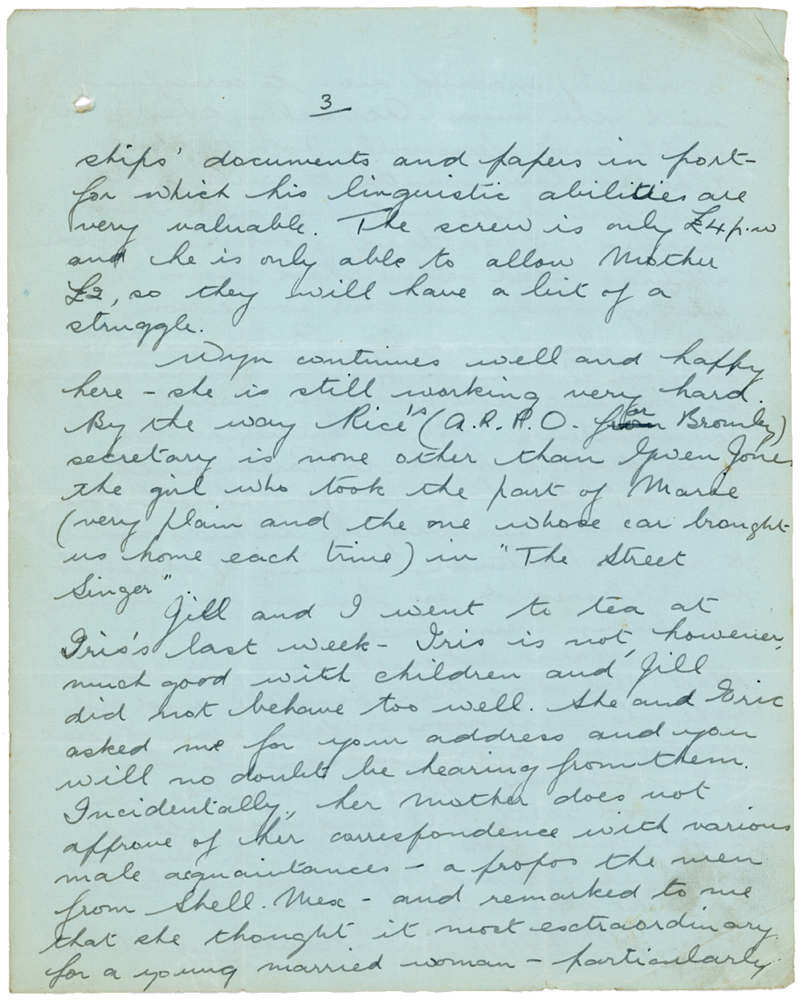 3
ships' documents and papers in port-
for which his linguistic abilities are
very valuable. The screw is only £4 p.w
and he is only able to allow Mother
£2, so they will have a bit of a
struggle.
Wyn continues well and happy
here - she is still working very hard.
By the way Rice's (A.R.P.O. for Bromley)
secretary is none other than Gwen Jones
the girl who took the part of Marie
(very plain and the one whose car brought
us home each time) in "The Street
Singer".
Jill and I went to tea at
Iris's last week - Iris is not, however,
much good with children and Jill
did not behave too well. She and Eric
asked me for your address and you
will no doubt be hearing from them.
Incidentally, her mother does not
approve of her correspondence with various
male acquaintances - a propos the men
from Shell. Mex - and remarked to me
that she thought it most extraordinary
for a young married woman - particularly